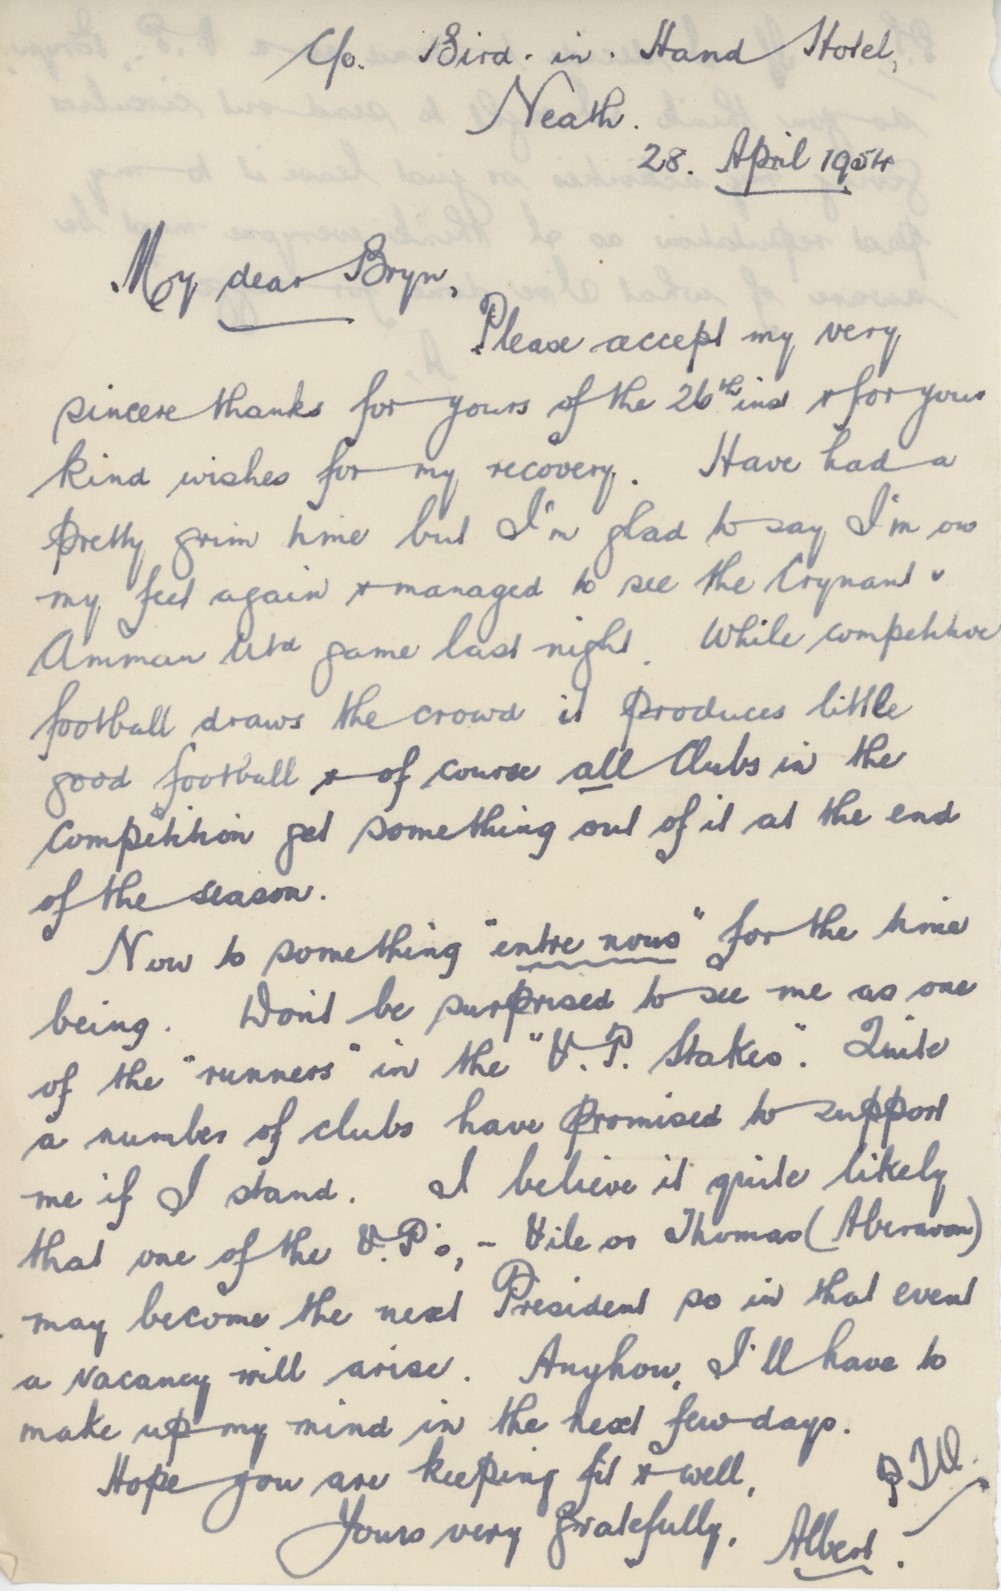 C/o. Bird. in. Hand Hotel,
Neath.
28. April 1954
My dear Bryn,
Please accept my very
sincere thanks for yours of the 26th inst & for your
kind wishes for my recovery. Have had a
pretty grim time but I'm glad to say I'm on
my feet again & managed to see the Crynant v
Amman Utd game last night. While competitive
football draws the crowd it produces little
good football & of course all Clubs in the
Competition get something out of it at the end
of the season.
Now to something "entre nous" for the time
being. Don't be surprised to see me as one
of the "runners" in the "V.P. Stakes". Quite
a number of clubs have promised to support
me if I stand. I believe it quite likely
that one of the V.P's, - Vile or Thomas (Aberavon)
may become the next President so in that event
a vacancy will arise. Anyhow, I'll have to
make up my mind in the next few days.
Hope you are keeping fit & well,
Yours very gratefully,
Albert.
PTO.